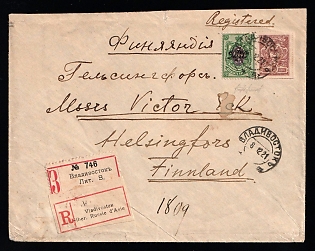 Registered.
Финляндія
Гельсингфорсъ.
Messrs Victor Ek
Helsingfors
Finnland
1809
ВЛАДИВОСТОКЪ
З
№ 746
Владивостокъ
Лит. В.
R
Vladivostok